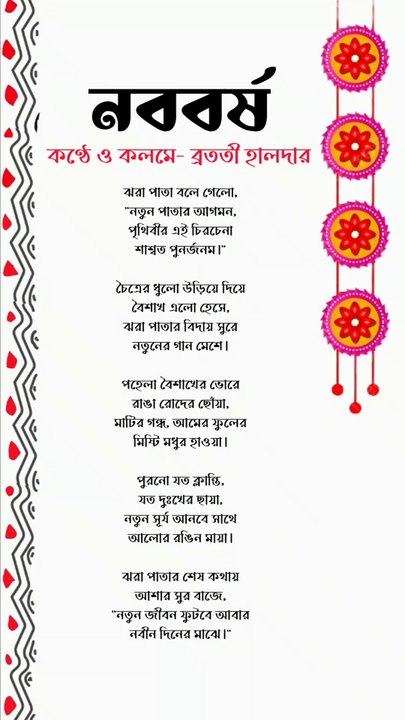 নববর্ষ
কণ্ঠে ও কলমে- ব্রততী হালদার
ঝরা পাতা বলে গেলো,
"নতুন পাতার আগমন,
পৃথিবীর এই চিরচেনা
শাশ্বত পুনর্জনম।"
চৈত্রের ধুলো উড়িয়ে দিয়ে
বৈশাখ এলো হেসে,
ঝরা পাতার বিদায় সুরে
নতুনের গান মেশে।
পহেলা বৈশাখের ভোরে
রাঙা রোদের ছোঁয়া,
মাটির গন্ধ, আমের ফুলের
মিষ্টি মধুর হাওয়া।
পুরনো যত ক্লান্তি,
যত দুঃখের ছায়া,
নতুন সূর্য আনবে সাথে
আলোর রঙিন মায়া।
ঝরা পাতার শেষ কথায়
আশার সুর বাজে,
"নতুন জীবন ফুটবে আবার
নবীন দিনের মাঝে।"